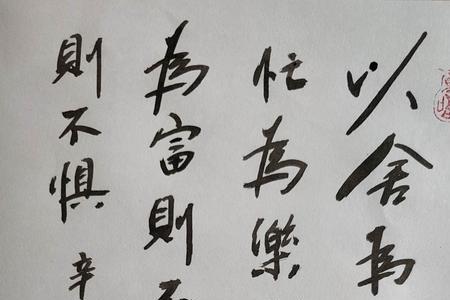 以舍為
忙為樂
為富則
則不惧 辛